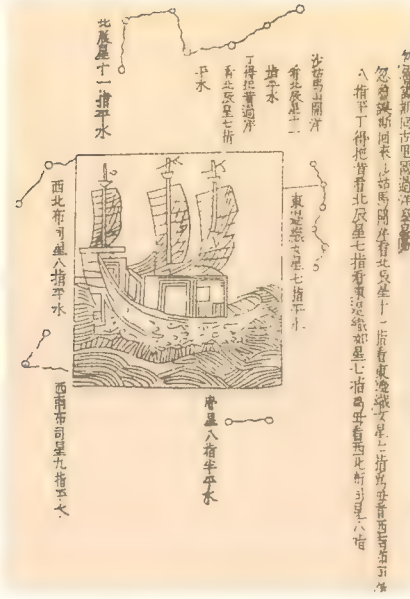 忽魯謨斯回古里國過洋牽星圖
忽魯謨斯回來沙姑馬開洋看北辰星十一指看東邊織女星七指為母看西南布司星
八指平丁得把昔看北辰星七指看東邊織女星七指為母看西北布司星八指
沙姑馬山開洋
看北辰星十一
指平水
丁得把昔過洋
看北辰星七指
平水
北辰星十一指平水
東邊織女星七指平水
西北布司星八指平水
骨星八指半平水
西南布司星九指平水